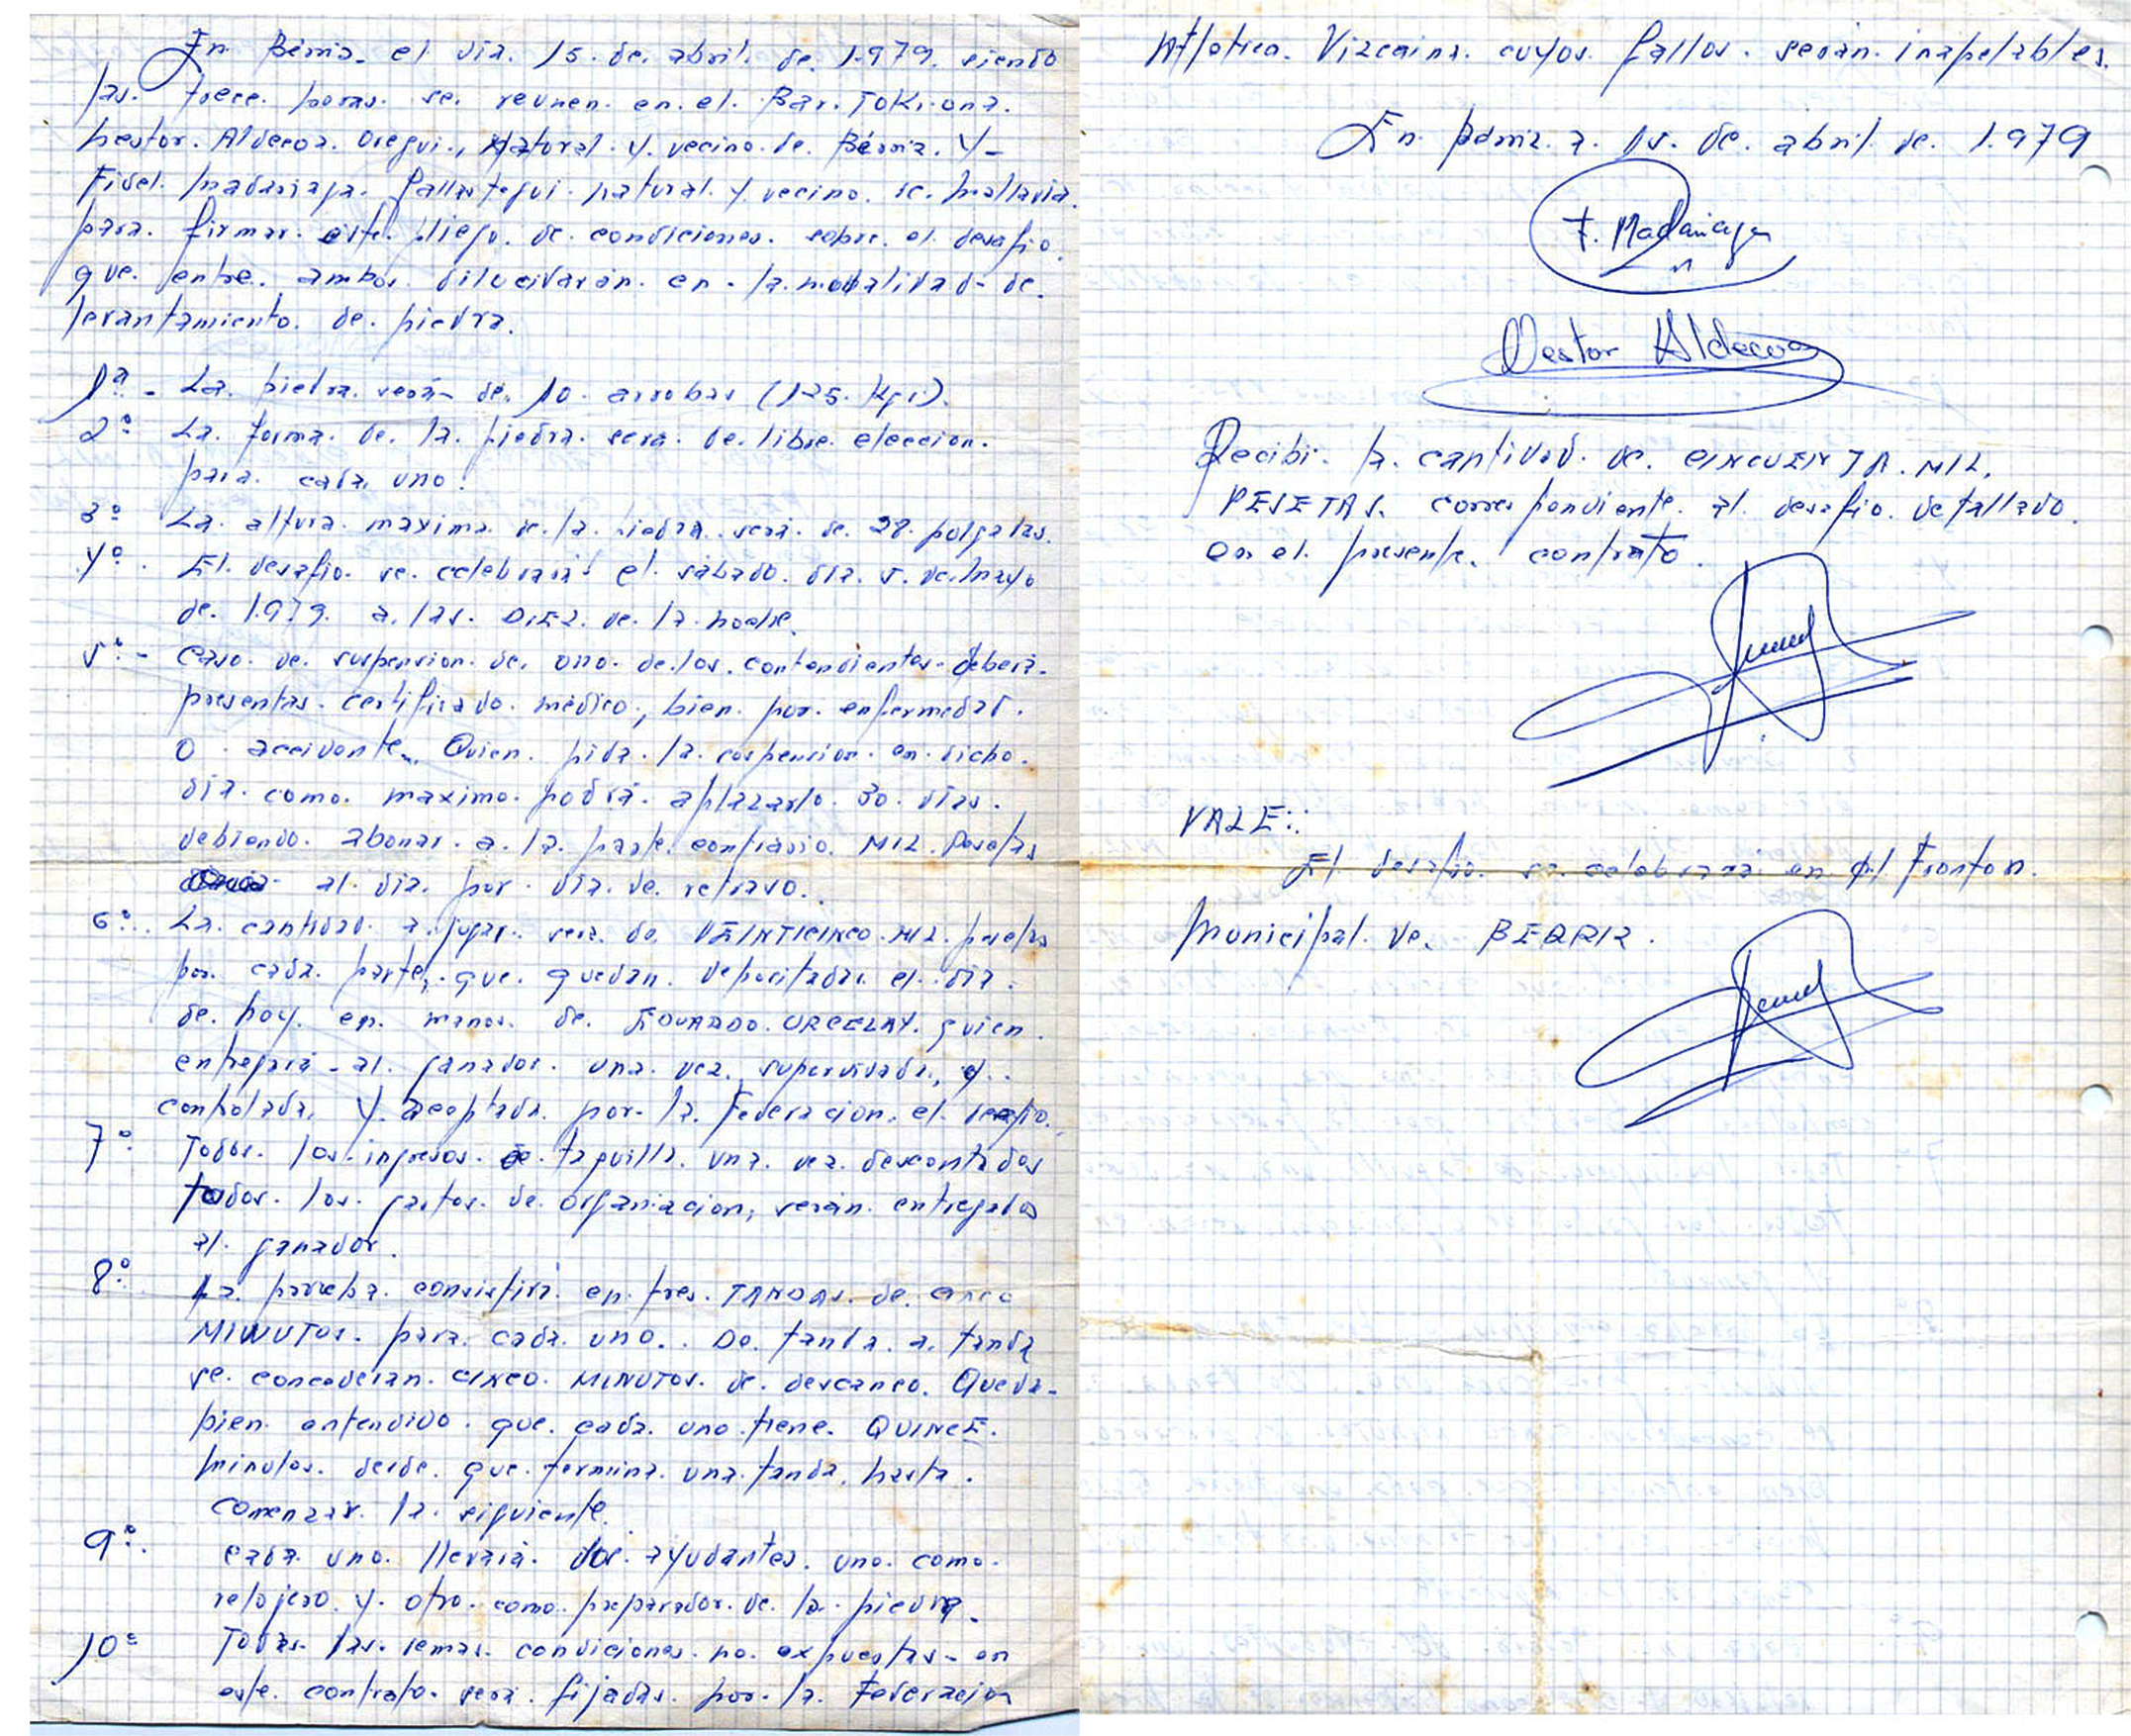 En Bérriz. el día. 15. de. abril. de. 1.979. siendo
las. trece. horas. se. reunen. en. el. Bar. TOKI-ONA.
Nestor. Aldecoa. Oregui., Natural. y. vecino. de. Bérriz. Y-
Fidel. Madariaga. Gallastegui. natural. y. vecino. de. Mallavia.
para. firmar. este. pliego. de. condiciones. sobre. el. desafio.
que. entre. ambos. dilucidarán. en - la. modalidad - de.
levantamiento. de. piedra.
1ª - La. piedra. será - de. 10. arrobas (125. Kgs).
2º La. forma. de. la. piedra. sera. de. libre. eleccion.
para. cada. uno.
3º La. altura. maxima. de. la. piedra. sera. de. 28. pulgadas.
4º. El. desafio. se. celebrará el. sábado. día. 5. de. Mayo
de. 1.979. a. las. DIEZ. de. la. noche.
5º - Caso. de. suspension. de. uno. de. los. contendientes - deberá.
presentar. certificado. médico, bien. por. enfermedad.
o. accidente. Quien. pida. la. suspension. en. dicho.
día. como. maximo. podrá. aplazarlo. 30. días.
debiendo. abonar. a. la. parte. contrario. MIL. Pesetas
al. dia. por. día. de. retraso.
6º. La. cantidad. a. jugar. sera. de. VEINTICINCO. MIL. pesetas
por. cada. parte,. que. quedan. depositadas. el. día.
de. hoy. en. manos. de. EDUARDO. URCELAY. quien.
entregará - al. ganador. una. vez. supervisada, y.
controlada. y. aceptada. por. la. Federacion. el
7º. Todos. los. ingresos. de. taquilla. una. vez. descontados
todos. los. gastos. de. organizacion, serán. entregados
al. ganador.
8º. La. prueba. consistirá en. tres. TANDAS. de. CINCO
MINUTOS. para. cada. uno.. De. tanda. a. tanda
se. concederan. CINCO. MINUTOS. de. descanso. Queda-
bien. entendido. que. cada. uno. tiene. QUINCE.
minutos. desde. que. termina. una. tanda. hasta.
comenzar. la. siguiente.
9º. Cada. uno. llevará. dos. ayudantes. uno. como.
relojero. y. otro. como. preparador. de. la. piedra.
10º Todas. las. demas. condiciones. no. expuestas - en
este. contrato. será. fijadas. por. la. Federacion
Atlética. Vizcaina. cuyos. fallos. serán. inapelables.
En. Bérriz. a. 15. de. abril. de. 1.979
F. Madariaga
Nestor Aldecoa
Recibi. la. cantidad. de. CINCUENTA. MIL.
PESETAS. correspondiente. al. desafio. detallado.
en el. presente. contrato.
VALE:.
El desafio. se celebrará en el Fronton.
Municipal. de. BERRIZ.